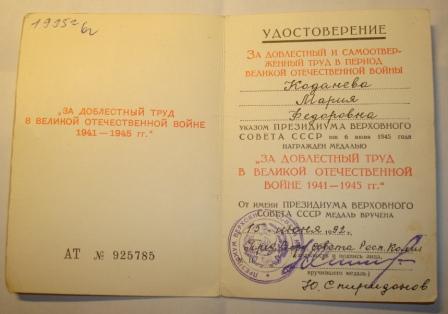 1995г
„ЗА ДОБЛЕСТНЫЙ ТРУД
В ВЕЛИКОЙ ОТЕЧЕСТВЕННОЙ ВОЙНЕ
1941—1945 гг.“
АТ № 925785
УДОСТОВЕРЕНИЕ
ЗА ДОБЛЕСТНЫЙ И САМООТВЕР-
ЖЕННЫЙ ТРУД В ПЕРИОД
ВЕЛИКОЙ ОТЕЧЕСТВЕННОЙ ВОЙНЫ
Коданева
Мария
Федоровна
УКАЗОМ ПРЕЗИДИУМА ВЕРХОВНОГО
СОВЕТА СССР от 6 июня 1945 года
НАГРАЖДЕН МЕДАЛЬЮ
„ЗА ДОБЛЕСТНЫЙ ТРУД
В ВЕЛИКОЙ ОТЕЧЕСТВЕННОЙ
ВОЙНЕ 1941—1945 гг.“
От имени ПРЕЗИДИУМА ВЕРХОВНОГО
СОВЕТА СССР МЕДАЛЬ ВРУЧЕНА
15 июня 1992 г.
Совета Респ. Коми
подпись лица,
вручившего медаль)
Ю. Спиридонов